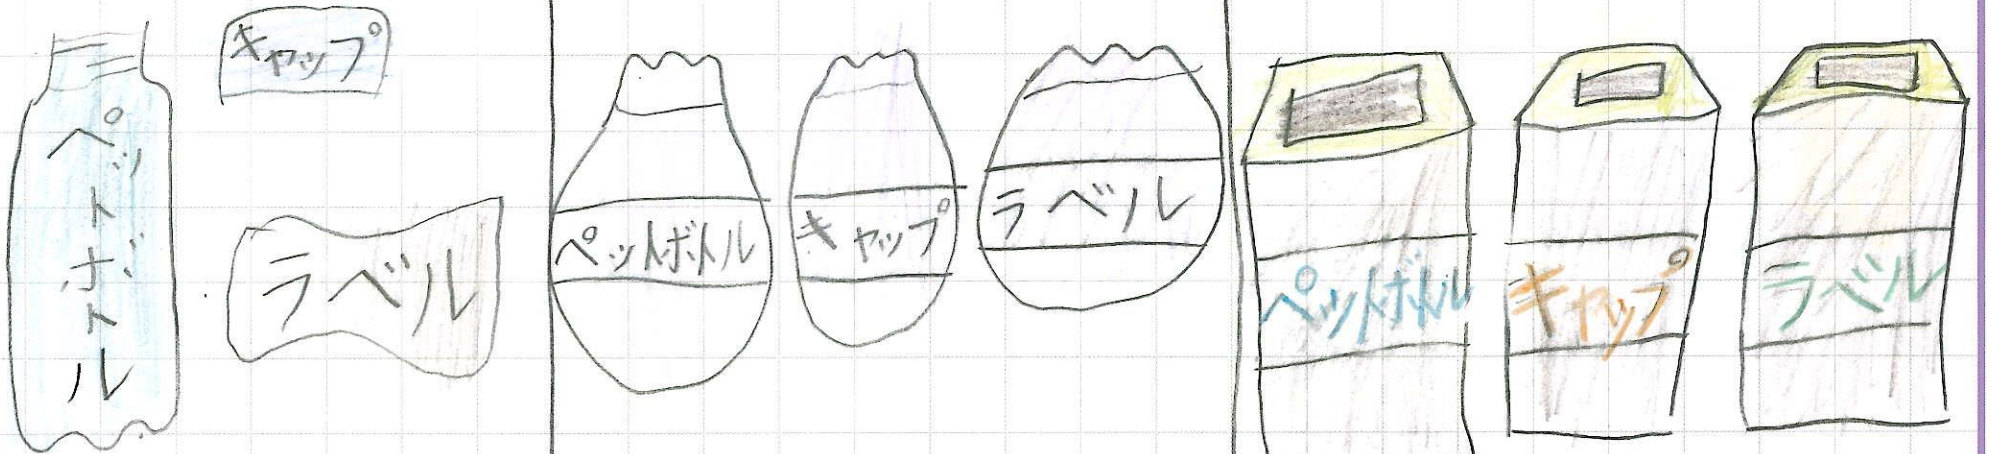 ペットボトル
キャップ
ラベル
ペットボトル
キャップ
ラベル
ペットボトル
キャップ
ラベル